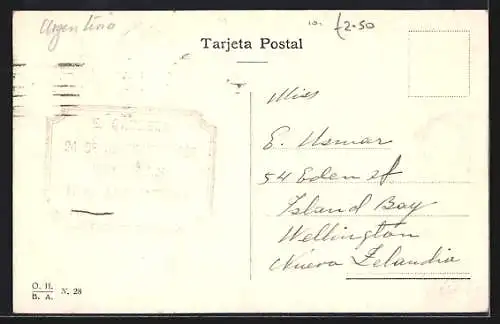 Argentina
10.
£2.50
Tarjeta Postal
Miss
E. Usmar
54 Eden st
Island Bay
Wellington
Nueva Zelandia
O. H.
B. A.
N. 28